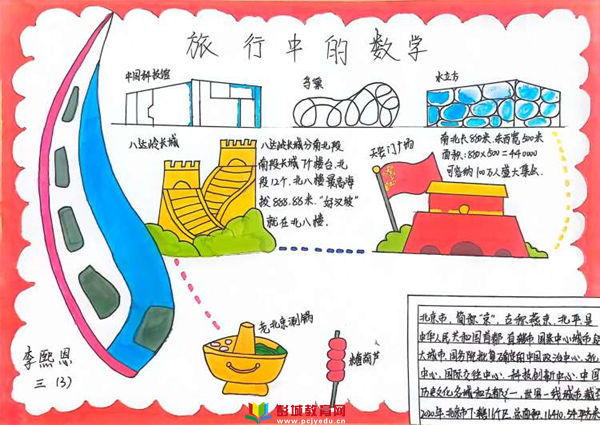 旅行中的数学
中国科技馆
鸟巢
水立方
八达岭长城
八达岭长城分南北段
南段长城7个楼台,北
段12个,北八楼最高海
拔888.88米."好汉坡"
就在北八楼.
天安门广场
南北长880米,东西宽500米
面积:880×500=44000
可容纳100万人盛大集会.
老北京涮锅
糖葫芦
李熙恩
三(3)
北京市,简称"京",古称燕京、北平是
中华人民共和国首都、直辖市、国家中心城市、超
大城市,国务院批复确定的中国政治中心、文化
中心、国际交往中心、科技创新中心,中国
历史文化名城和古都之一,世界一线城市.截至
2020年,北京市下辖16个区,总面积16410.54平方米
彭城教育网
www.pcjyedu.cn